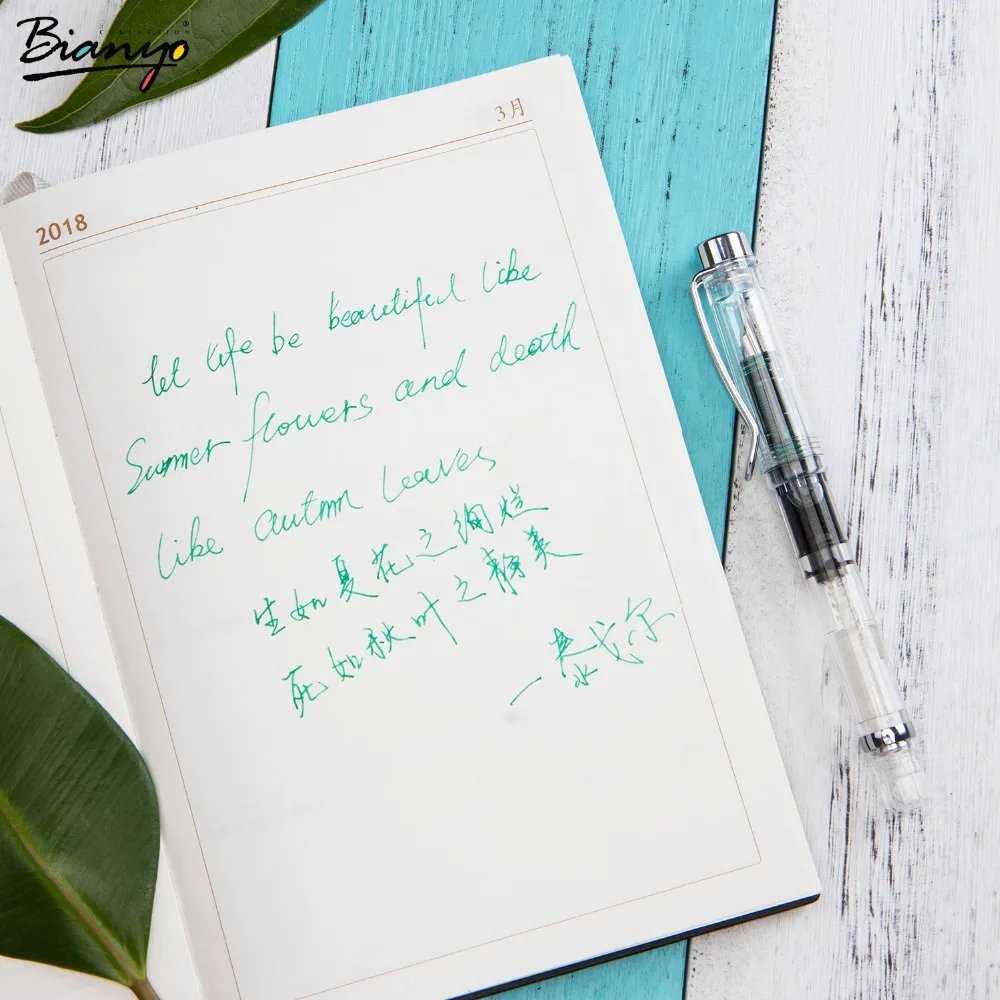 Bianyo
COLLECTION
3月
2018
let life be beautiful like
Summer flowers and death
like autmn leaves
生如夏花之绚烂
死如秋叶之静美
一泰戈尔